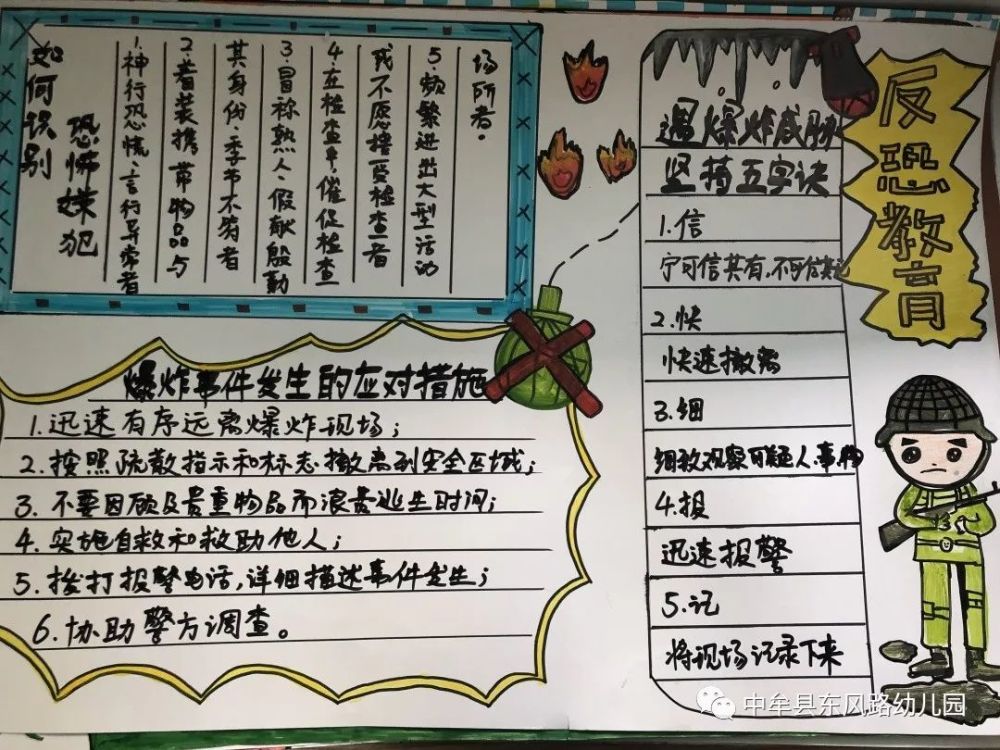 反恐教育
如何识别
恐怖嫌犯
1.神行恐慌、言行异常者
2.着装携带物品与
其身份、季节不符者
3.冒称熟人、假献殷勤
4.在检查中,催促检查
或不愿接受检查者
5.频繁进出大型活动
场所者。
爆炸事件发生的应对措施
1.迅速有序远离爆炸现场;
2.按照疏散指示和标志撤离到安全区域;
3.不要因顾及贵重物品而浪费逃生时间;
4.实施自救和救助他人;
5.拨打报警电话,详细描述事件发生;
6.协助警方调查。
遇爆炸威胁
坚持五字诀
1.信
宁可信其有,不可信其无
2.快
快速撤离
3.细
细致观察可疑人、事、物
4.报
迅速报警
5.记
将现场记录下来
中牟县东风路幼儿园